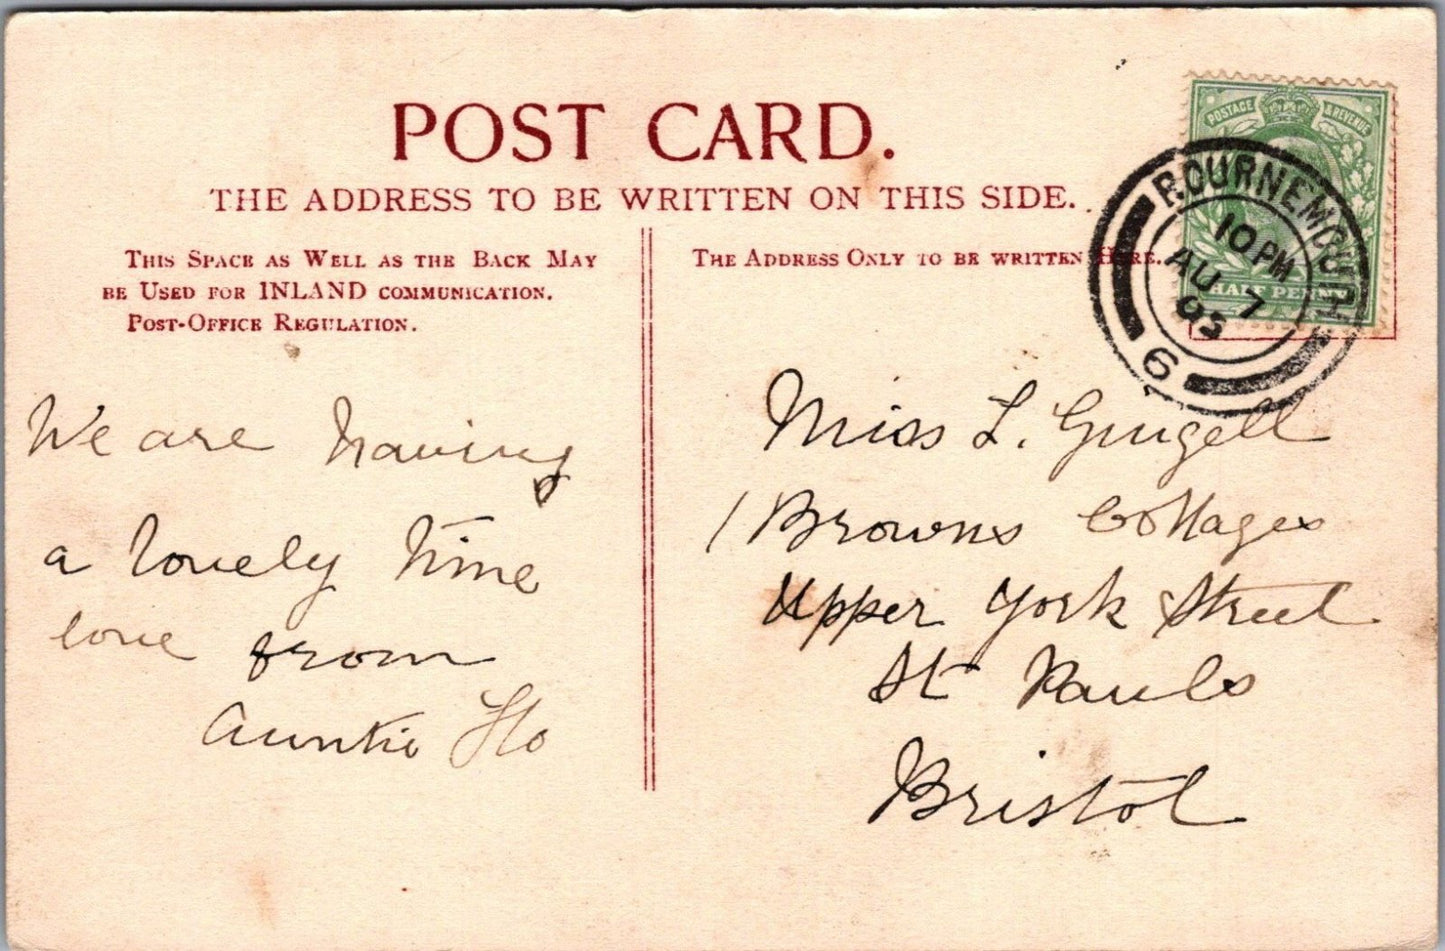 POST CARD.
THE ADDRESS TO BE WRITTEN ON THIS SIDE.
THIS SPACE AS WELL AS THE BACK MAY
BE USED FOR INLAND COMMUNICATION.
POST-OFFICE REGULATION.
THE ADDRESS ONLY TO BE WRITTEN HERE.
POSTAGE & REVENUE
HALF PENNY
BOURNEMOUTH
10 PM
AU 7
05
6
We are having
a lovely time
love from
Auntie Flo
Miss L. Gingell
1 Browns Cottages
Upper York Street
St Pauls
Bristol